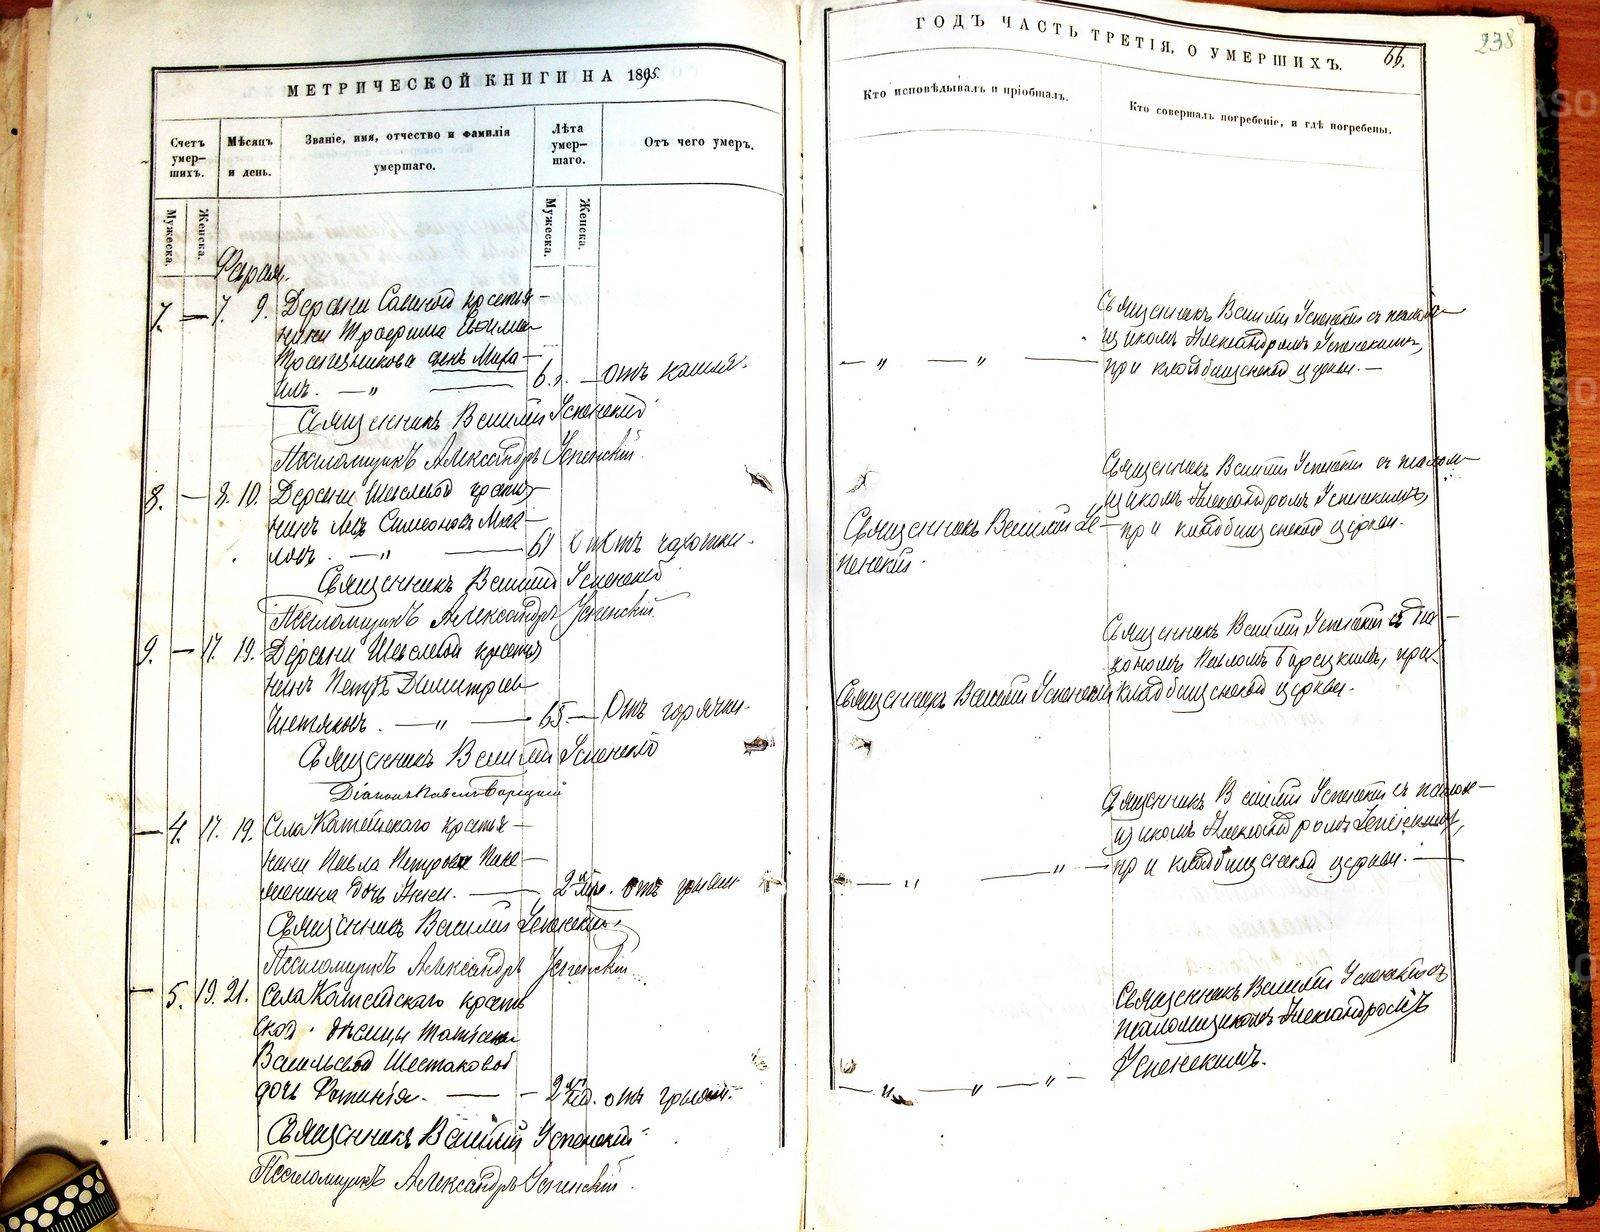 МЕТРИЧЕСКОЙ КНИГИ НА 1895.
Счетъ умер-шихъ.
Мѣсяцъ и день.
Званіе, имя, отчество и фамилія умершаго.
Лѣта умер-шаго.
Отъ чего умеръ.
Мужеска.
Женска.
Мужеска.
Женска.
7. — 7. 9. Деревни крестья-
нина Трофима
сынъ Миха-
илъ. — " — 6 — отъ кашля.
Священникъ Василій Успенскій
Псаломщикъ Александръ Успенскій.
8. — 8. 10. Деревни
Левъ Симеоновъ
— " — 61 отъ чахотки.
Священникъ Василій Успенскій
Псаломщикъ Александръ Успенскій.
9. — 17. 19. Деревни крестья-
нинъ Петръ Димитріевъ
Чистяковъ. — " — 65 — Отъ горячки.
Священникъ Василій Успенскій
Діаконъ Павелъ
— 4. 17. 19. Села крестья-
нина Павла Петрова
дочь Анна. — 2 отъ
Священникъ Василій Успенскій.
Псаломщикъ Александръ Успенскій
— 5. 19. 21. Села крестьян-
ской дѣвицы Татіаны
Васильевой Шестаковой
дочь Фотинія. — 2 нед. отъ
Священникъ Василій Успенскій
Псаломщикъ Александръ Успенскій.
ГОДЪ ЧАСТЬ ТРЕТІЯ, О УМЕРШИХЪ.
66.
238
Кто исповѣдывалъ и пріобщалъ.
Кто совершалъ погребеніе, и гдѣ погребены.
Священникъ Василій Успенскій съ псалом-
щикомъ Александромъ Успенскимъ,
— " — " — при кладбищенской церкви. —
Священникъ Василій Успенскій съ псалом-
щикомъ Александромъ Успенскимъ,
Священникъ Василій Ус- при кладбищенской церкви.
пенскій.
Священникъ Василій Успенскій съ діа-
кономъ Павломъ при
Священникъ Василій Успенскій кладбищенской церкви.
Священникъ Василій Успенскій съ псалом-
щикомъ Александромъ Успенскимъ,
— " — " — при кладбищенской церкви. —
Священникъ Василій Успенскій съ
псаломщикомъ Александромъ
Успенскимъ.
— " — " — " —